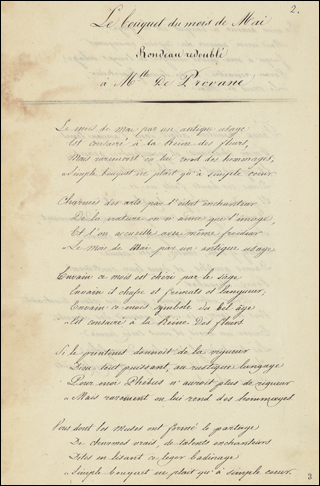 2.
Le bouquet du mois de Mai
Rondeau redoublé
à Mlle De Provane
Le mois de Mai par un antique usage
Est consacré à la Reine des fleurs,
Mais rarement on lui rend des hommages,
Simple bouquet ne plait qu'à simple coeur.
Charmés des arts par l'attrait enchanteur
De la nature on n'aime que l'image,
Et l'on accueille avec même froideur
Le mois de Mai par un antique usage
Envain ce mois est chéri par le
Envain il chasse et frimats et langueur,
Envain ce mois symbole du bel âge
Est consacré à la Reine Des fleurs
Si le printems donnoit de la vigueur
Dieu tout puissant, au rustique langage
Pour moi Phebus n'auroit plus de rigueur
Mais rarement on lui rend des hommages
Vous dont les Muses ont formé le partage
De charmes vrais, de talents enchanteurs
Dites en lisant ce leger badinage
Simple bouquet ne plait qu'à simple coeur.
3